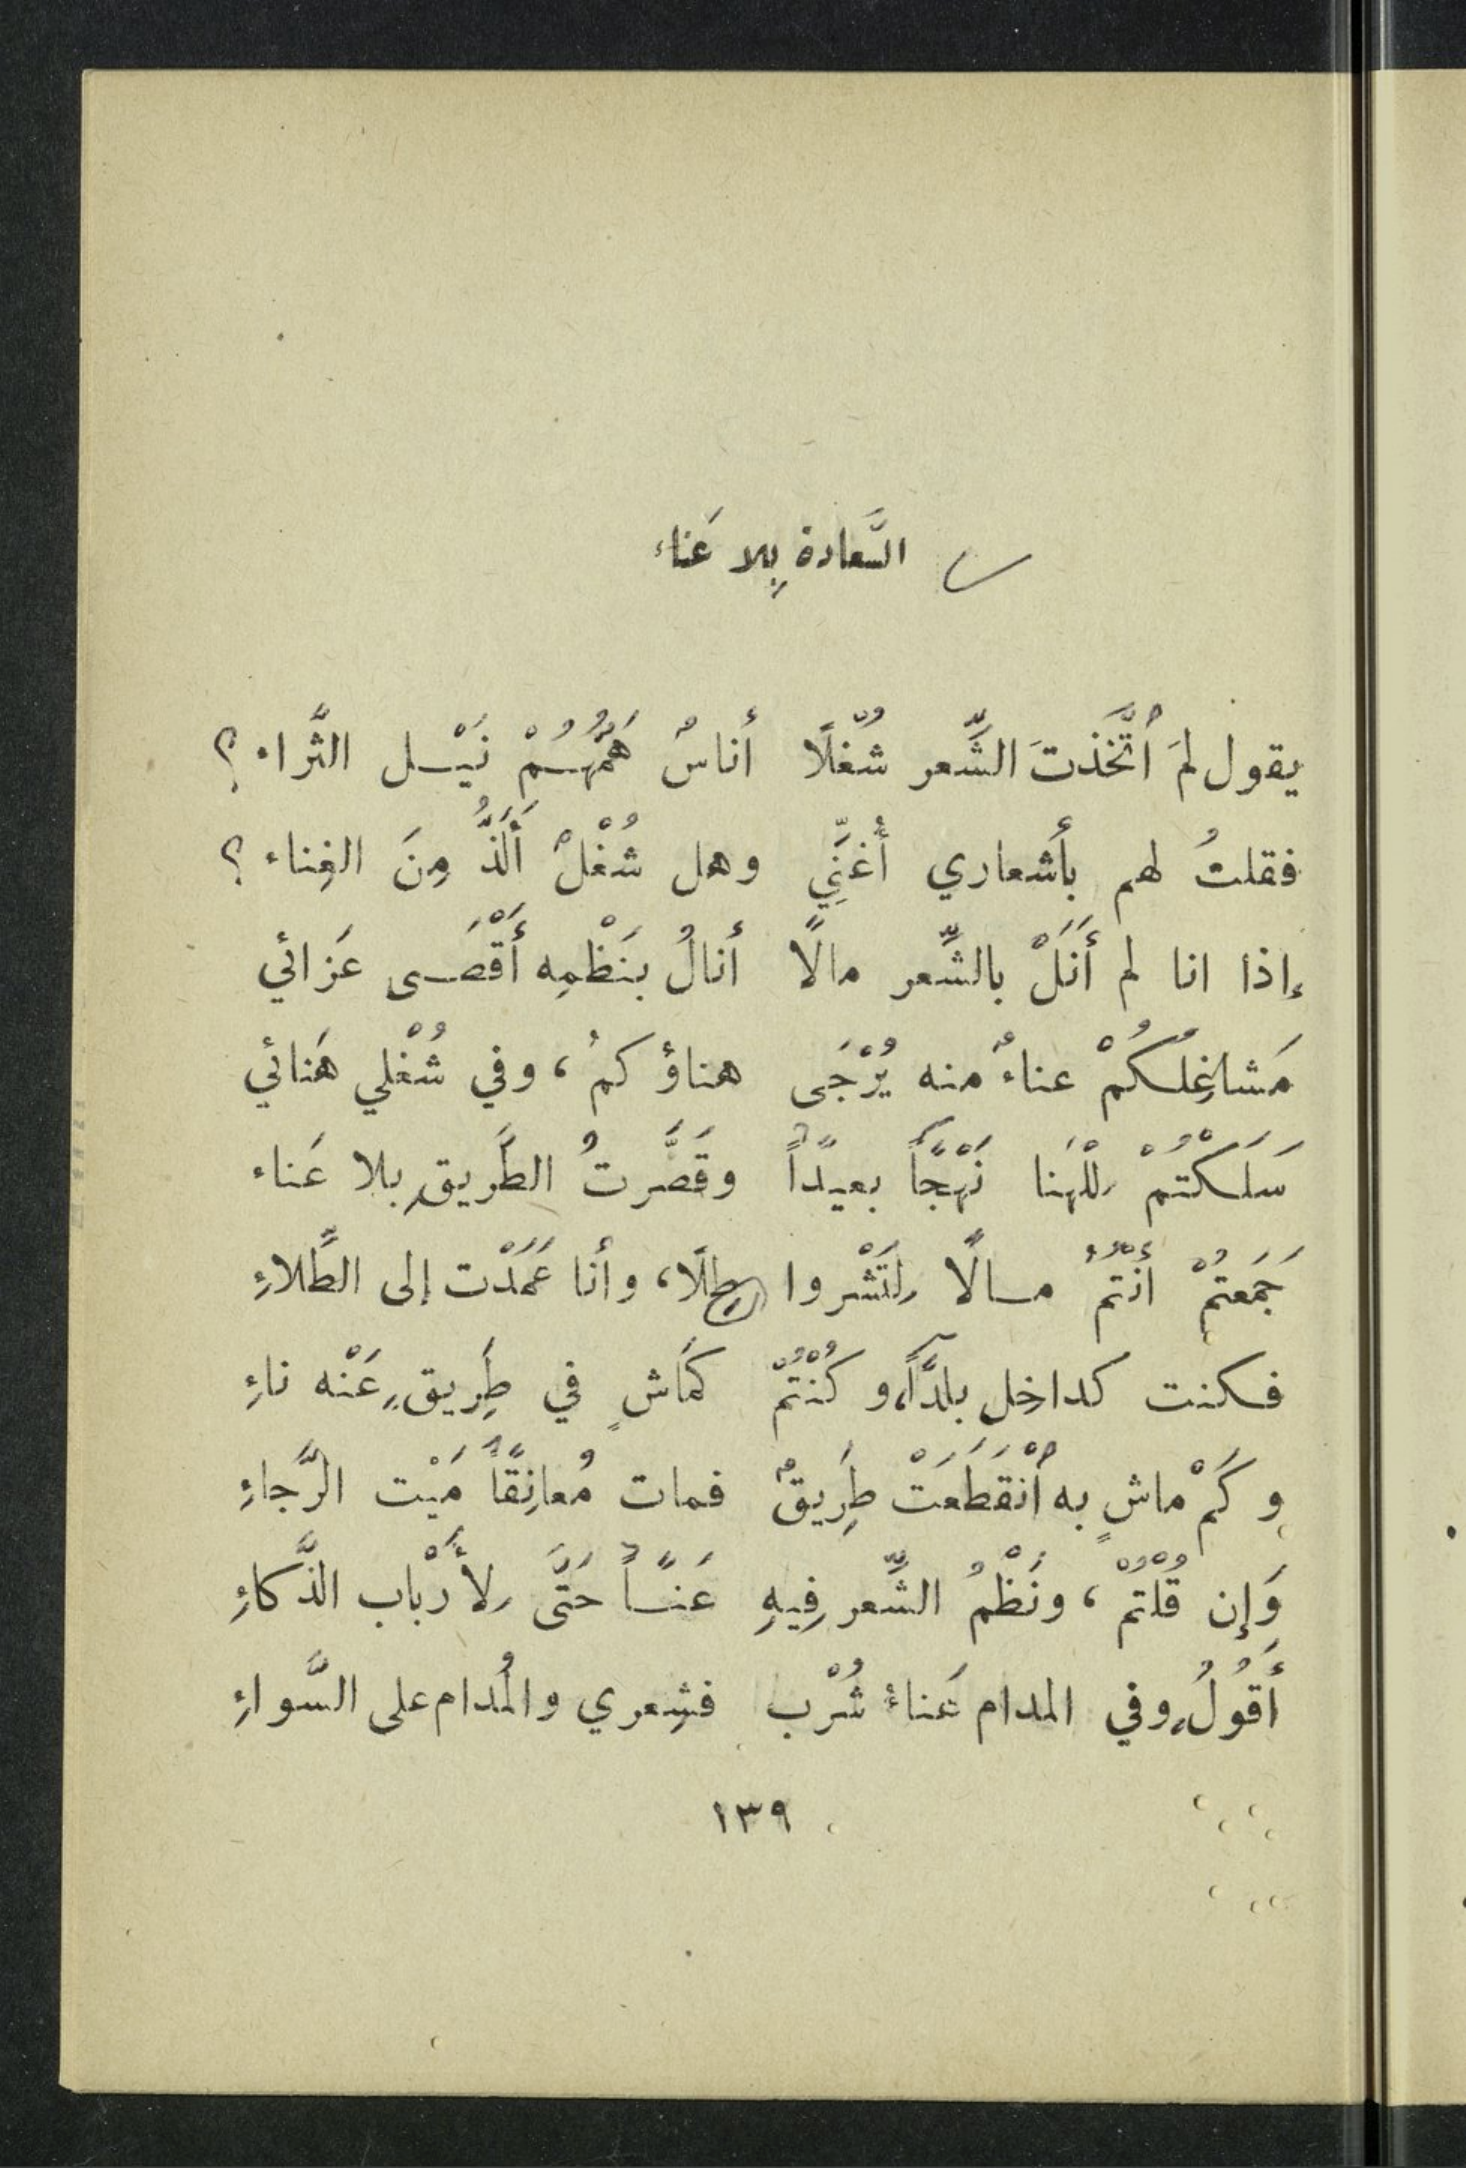 السَّعادة بِلا عَناء
يقول لمَ ٱتَّخَذتَ الشِّعر شُغلًا أناسٌ هَمُّهُمْ نَيْل الثَّراء ؟
فقلتُ لهم بأشعاري أُغَنِّي وهل شُغْلٌ أَلَذُّ مِنَ الغِناء ؟
إذا انا لم أَنَلْ بالشِّعر مالًا أنالُ بنَظْمِه أَقْصَى عَزائي
مَشاغِلُكُمْ عناءٌ منه يُرْجَى هناؤكمُ ، وفي شُغْلي هَنائي
سَلَكْتُمْ لِلْهَنا نَهْجًا بعيدًا وقَصَّرتُ الطَريق بِلا عَناء
جَمَعتُمْ أَنْتُمُ مالًا لِتَشْروا طِلًا، وأنا عَمَدْت إلى الطِّلاءِ
فكنت كداخِل بلدًا، وكُنْتُمْ كَماشٍ في طَرِيقٍ عَنْه ناءِ
وكَمْ ماشٍ به ٱنْقَطَعَتْ طَرِيقٌ فمات مُعانِقًا مَيْت الرَّجاءِ
وَإِن قُلْتُمْ ، ونَظْمُ الشِّعر فِيهِ عَنًا حَتَّى لِأَرْباب الذَّكاءِ
أَقُولُ وفي المدام عَناءُ شُرْب فشِعري والمُدام على السَّواءِ
١٣٩